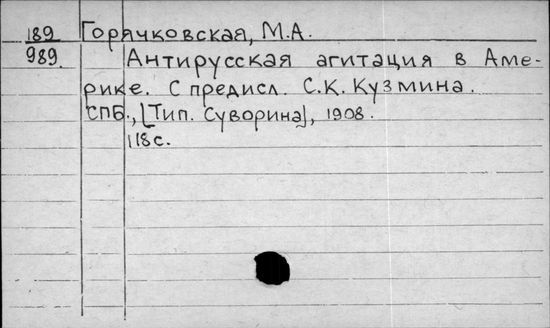 189 Горячковская, М.А.
989. Антирусская агитация в Аме-
рике. С предисл. С.К. Кузмина.
СПБ., [Тип. Суворина], 1908.
118с.